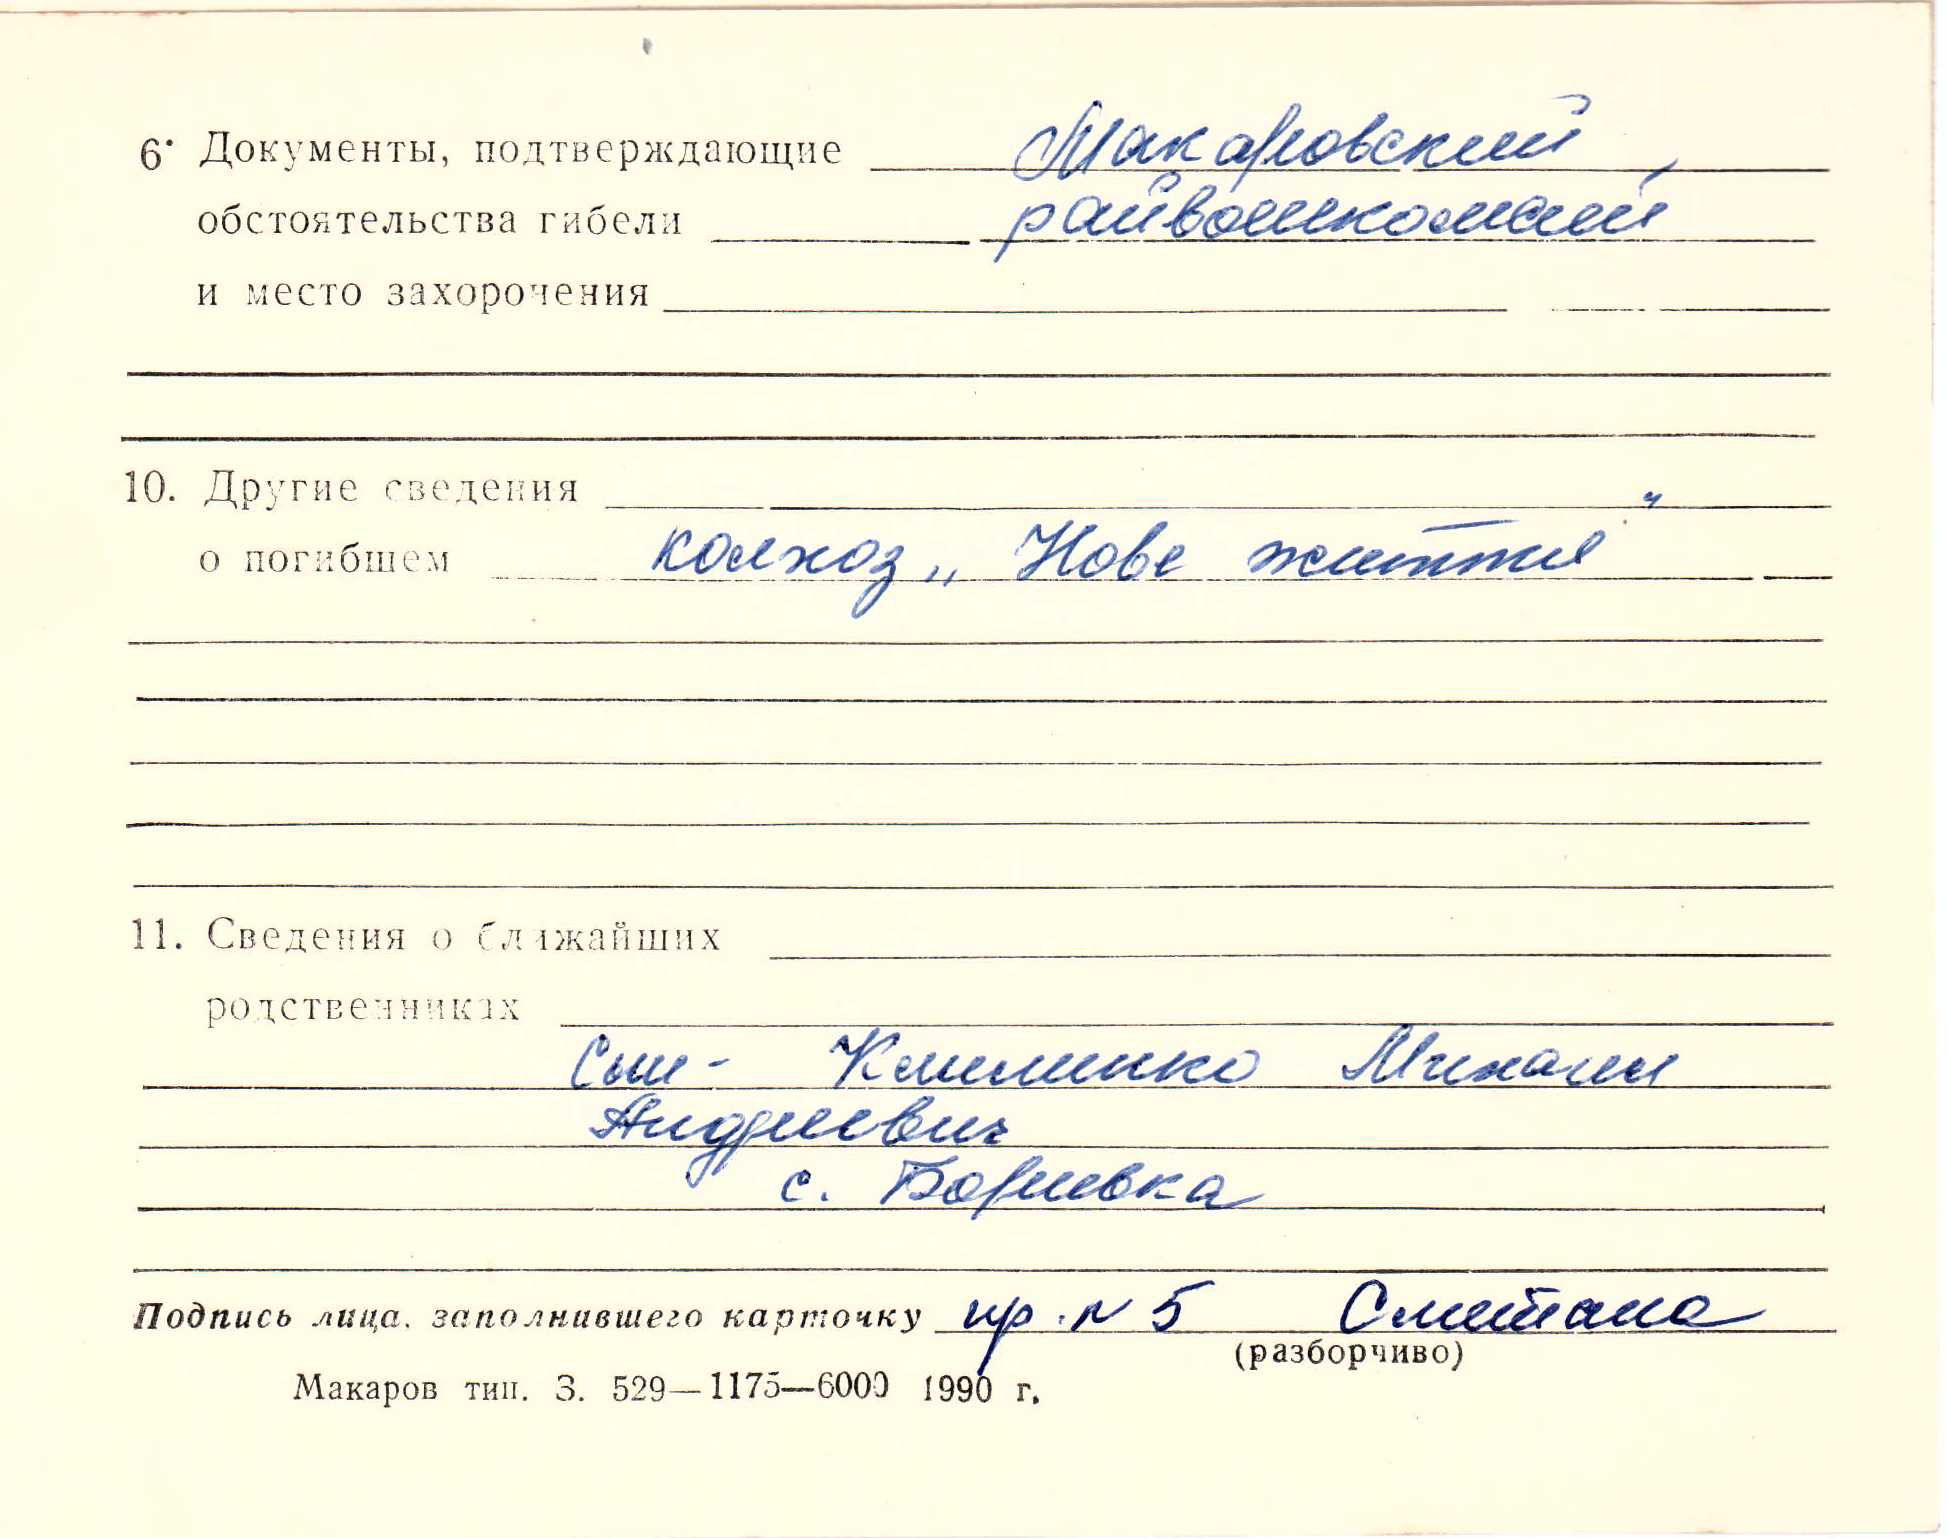 6. Документы, подтверждающие Макаровский
обстоятельства гибели райвоенкомат
и место захоронения
10. Другие сведения
о погибшем колхоз „Нове життя"
11. Сведения о ближайших
родственниках
Сын - Клименко Михаил
Андреевич
с. Боривка
Подпись лица, заполнившего карточку пр. N 5 Сметана
(разборчиво)
Макаров тип. З. 529—1175—6000 1990 г.